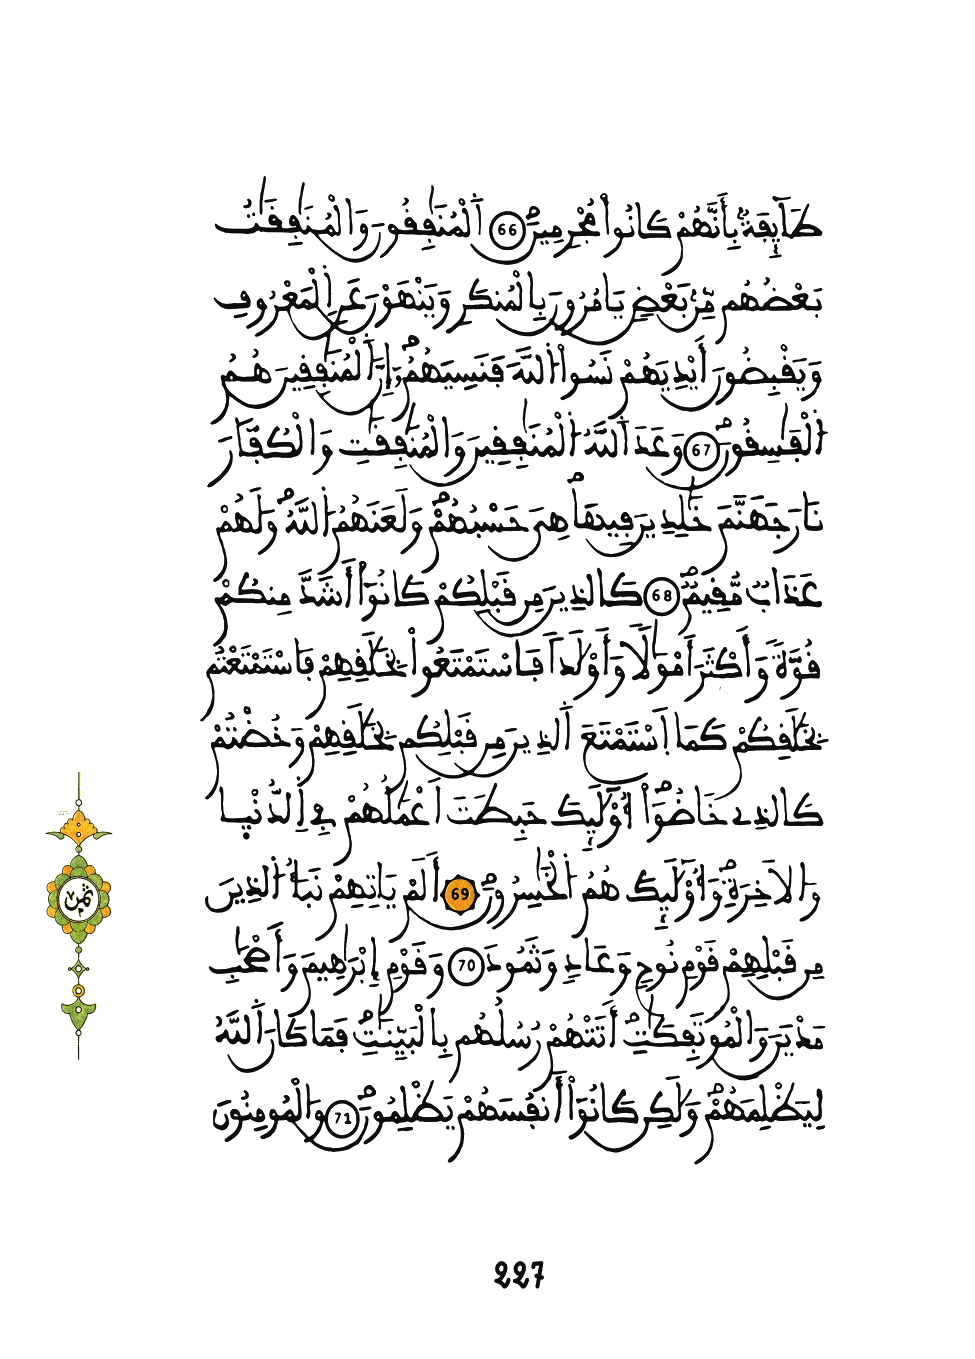 طَآئِفَةَۢ بِأَنَّهُمْ كَانُواْ مُجْرِمِينَۖ 66 اَ۬لْمُنَٰفِقُونَ وَالْمُنَٰفِقَٰتُ
بَعْضُهُم مِّنۢ بَعْضٖ يَامُرُونَ بِالْمُنكَرِ وَيَنْهَوْنَ عَنِ اِ۬لْمَعْرُوفِ
وَيَقْبِضُونَ أَيْدِيَهُمْ نَسُواْ اُ۬للَّهَ فَنَسِيَهُمُۥٓۖ إِنَّ اَ۬لْمُنَٰفِقِينَ هُمُ
اُ۬لْفَٰسِقُونَۖ 67 وَعَدَ اَ۬للَّهُ اُ۬لْمُنَٰفِقِينَ وَالْمُنَٰفِقَٰتِ وَالْكُفَّارَ
نَارَ جَهَنَّمَ خَٰلِدِينَ فِيهَاۖ هِىَ حَسْبُهُمْۖ وَلَعَنَهُمُ اُ۬للَّهُۖ وَلَهُمْ
عَذَابٞ مُّقِيمٞۖ 68 كَالذِينَ مِن قَبْلِكُمْ كَانُوٓاْ أَشَدَّ مِنكُمْ
قُوَّةٗ وَأَكْثَرَ أَمْوَٰلاٗ وَأَوْلَٰداٗ فَاسْتَمْتَعُواْ بِخَلَٰقِهِمْ فَاسْتَمْتَعْتُم
بِخَلَٰقِكُمْ كَمَا اَ۪سْتَمْتَعَ اَ۬لذِينَ مِن قَبْلِكُم بِخَلَٰقِهِمْ وَخُضْتُمْ
كَالذِے خَاضُوٓاْۖ أُوْلَٰٓئِكَ حَبِطَتَ اَعْمَٰلُهُمْ فِے اِ۬لدُّنْي۪ا
وَالَاخِرَةِۖ وَأُوْلَٰٓئِكَ هُمُ اُ۬لْخَٰسِرُونَۖ 69 أَلَمْ يَاتِهِمْ نَبَأُ اُ۬لذِينَ
مِن قَبْلِهِمْ قَوْمِ نُوحٖ وَعَادٖ وَثَمُودَ 70 وَقَوْمِ إِبْرَٰهِيمَ وَأَصْحَٰبِ
مَدْيَنَ وَالْمُوتَفِكَٰتِۖ أَتَتْهُمْ رُسُلُهُم بِالْبَيِّنَٰتِۖ فَمَا كَانَ اَ۬للَّهُ
لِيَظْلِمَهُمْۖ وَلَٰكِن كَانُوٓاْ أَنفُسَهُمْ يَظْلِمُونَۖ 71 وَالْمُومِنُونَ
ثمن
227